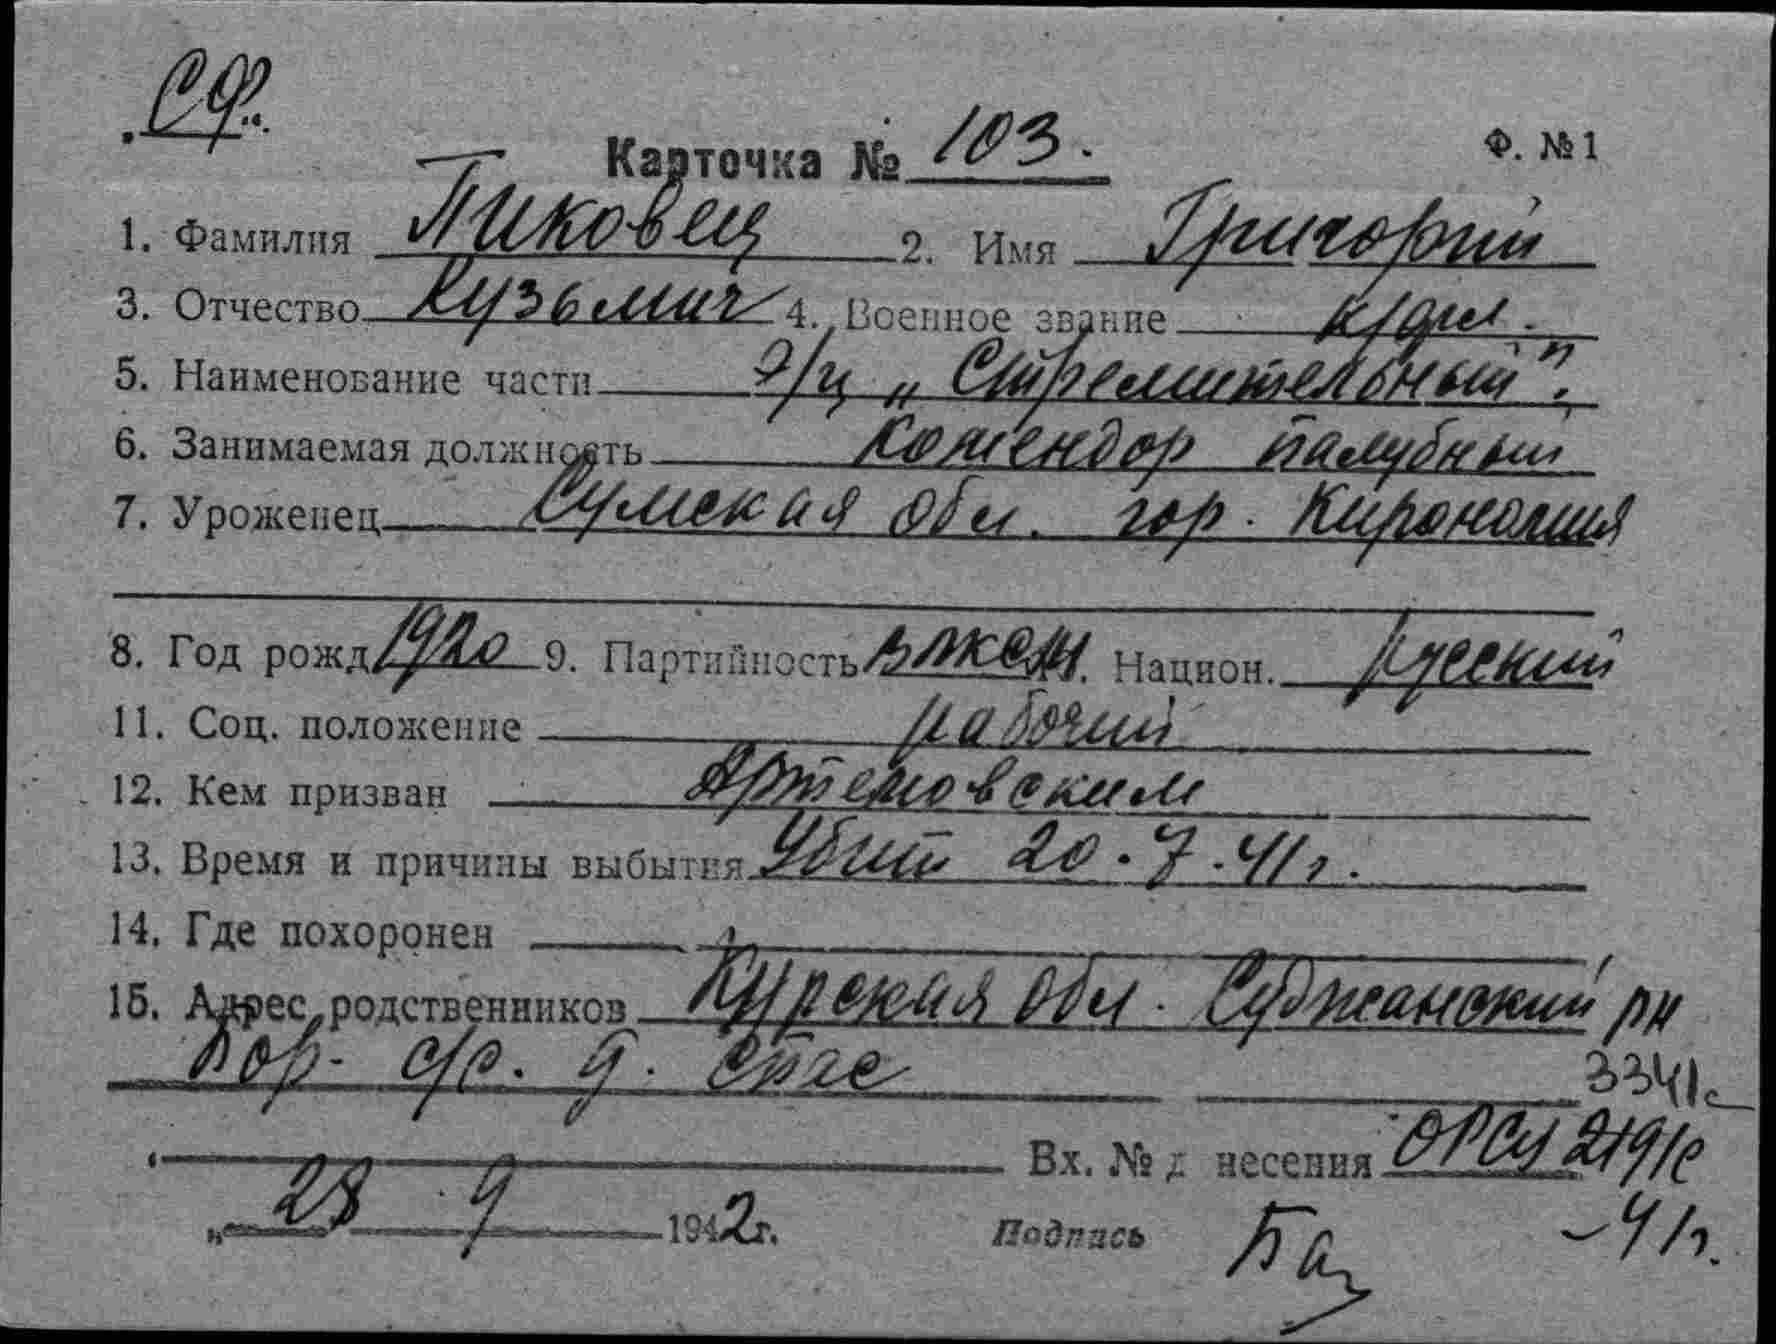 СФ.
Карточка № 103. Ф. № 1
1. Фамилия Пиковец 2. Имя Григорий
3. Отчество Кузьмич 4. Военное звание к/фл.
5. Наименование части Э/ц „Стремительный".
6. Занимаемая должность комендор палубный
7. Уроженец Сумская обл. гор.
8. Год рожд 1920 9. Партийность ВЛКСМ. Национ. русский
11. Соц. положение рабочий
12. Кем призван Артемовским
13. Время и причины выбытия Убит 20.7.41г.
14. Где похоронен
15. Адрес родственников Курская обл. Суджанский рн
с/с. д. Спас
3341с
Вх. № д несения ОРСУ 219/с
„ 28 9 1942г. Подпись
-41г.